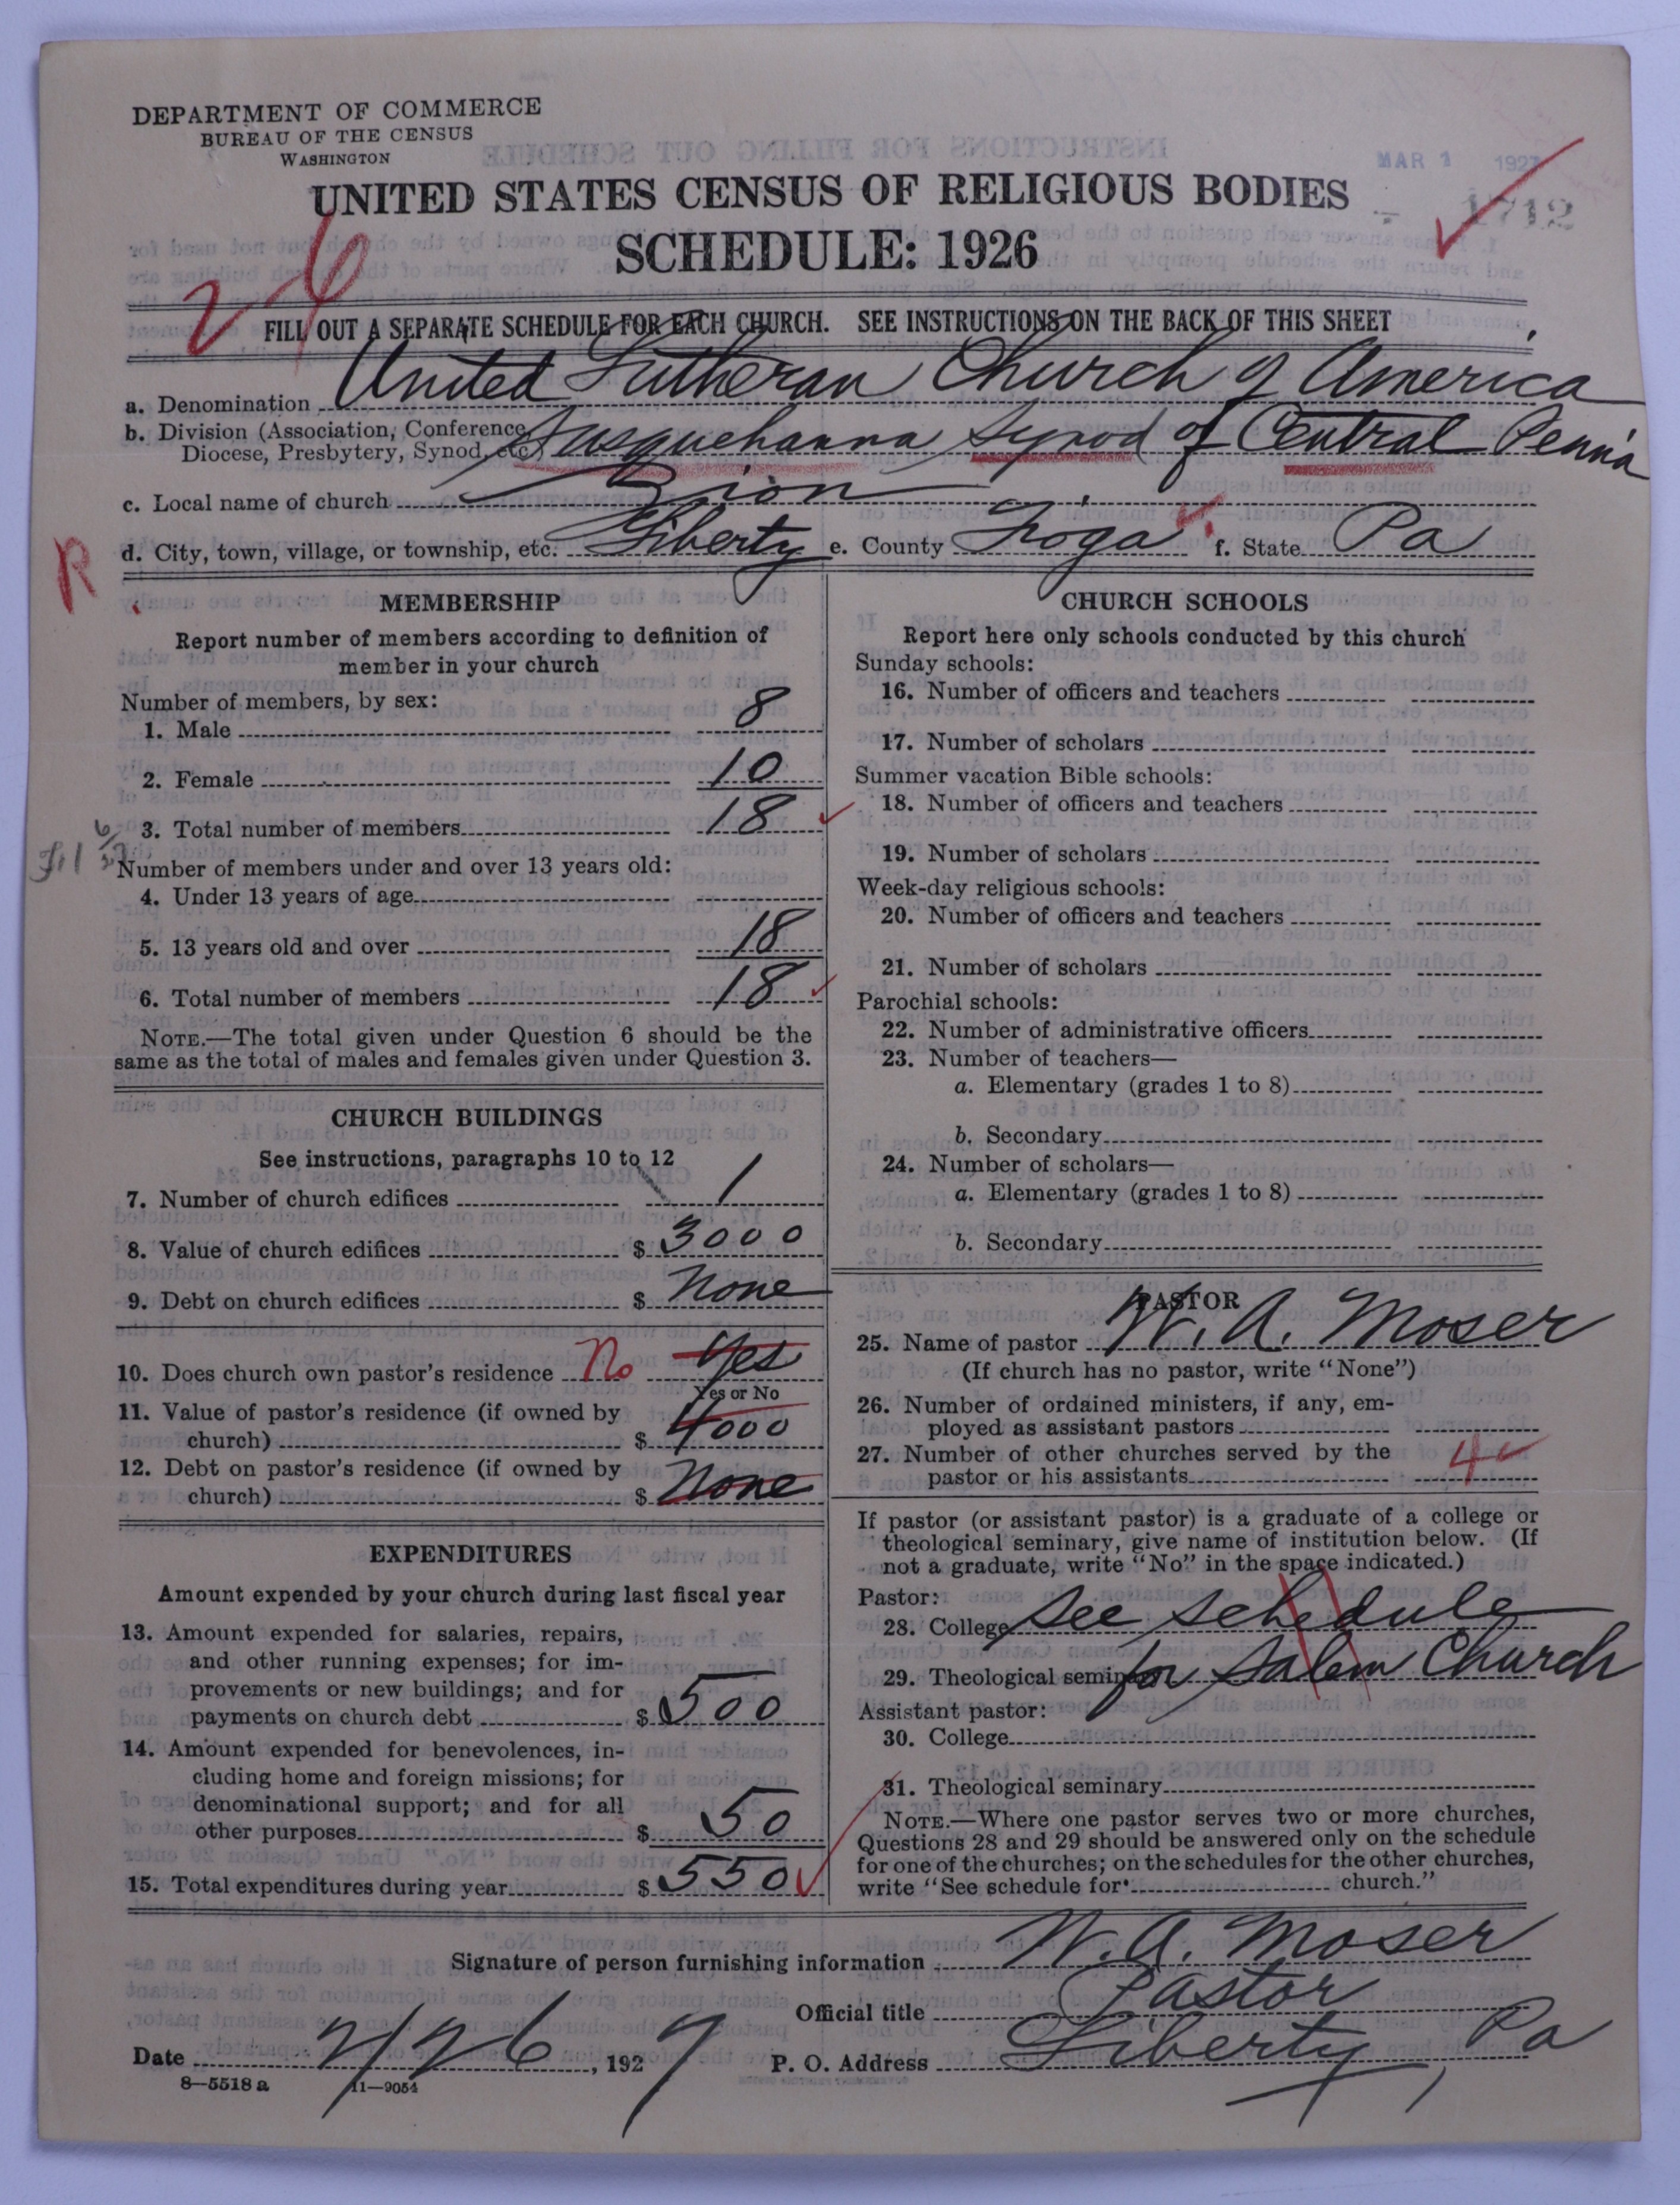 DEPARTMENT OF COMMERCE
BUREAU OF THE CENSUS
WASHINGTON
MAR 1 1927
1712
UNITED STATES CENSUS OF RELIGIOUS BODIES
SCHEDULE: 1926
FILL OUT A SEPARATE SCHEDULE FOR EACH CHURCH. SEE INSTRUCTIONS ON THE BACK OF THIS SHEET
a. Denomination United Lutheran Church of America
b. Division (Association, Conference,
Diocese, Presbytery, Synod, etc.) Susquehanna Synod of Central Penna
c. Local name of church Zion
R
d. City, town, village, or township, etc. Liberty e. County Tioga f. State Pa
MEMBERSHIP
Report number of members according to definition of
member in your church
Number of members, by sex:
1. Male 8
2. Female 10
3. Total number of members 18
Number of members under and over 13 years old:
4. Under 13 years of age
5. 13 years old and over 18
6. Total number of members 18
NOTE.—The total given under Question 6 should be the
same as the total of males and females given under Question 3.
CHURCH BUILDINGS
See instructions, paragraphs 10 to 12
7. Number of church edifices 1
8. Value of church edifices $ 3000
9. Debt on church edifices $ None
10. Does church own pastor's residence No Yes
Yes or No
11. Value of pastor's residence (if owned by
church) $ 4000
12. Debt on pastor's residence (if owned by
church) $ None
EXPENDITURES
Amount expended by your church during last fiscal year
13. Amount expended for salaries, repairs,
and other running expenses; for im-
provements or new buildings; and for
payments on church debt $ 500
14. Amount expended for benevolences, in-
cluding home and foreign missions; for
denominational support; and for all
other purposes $ 50
15. Total expenditures during year $ 550
CHURCH SCHOOLS
Report here only schools conducted by this church
Sunday schools:
16. Number of officers and teachers
17. Number of scholars
Summer vacation Bible schools:
18. Number of officers and teachers
19. Number of scholars
Week-day religious schools:
20. Number of officers and teachers
21. Number of scholars
Parochial schools:
22. Number of administrative officers
23. Number of teachers—
a. Elementary (grades 1 to 8)
b. Secondary
24. Number of scholars—
a. Elementary (grades 1 to 8)
b. Secondary
PASTOR
25. Name of pastor W. A. Moser
(If church has no pastor, write "None")
26. Number of ordained ministers, if any, em-
ployed as assistant pastors
27. Number of other churches served by the
pastor or his assistants 4
If pastor (or assistant pastor) is a graduate of a college or
theological seminary, give name of institution below. (If
not a graduate, write "No" in the space indicated.)
Pastor:
28. College See schedule
29. Theological seminary for Salem Church
Assistant pastor:
30. College
31. Theological seminary
NOTE.—Where one pastor serves two or more churches,
Questions 28 and 29 should be answered only on the schedule
for one of the churches; on the schedules for the other churches,
write "See schedule for church."
Signature of person furnishing information W. A. Moser
Official title Pastor
Date 2/26, 1927 P. O. Address Liberty, Pa
8—5518 a 11—9054